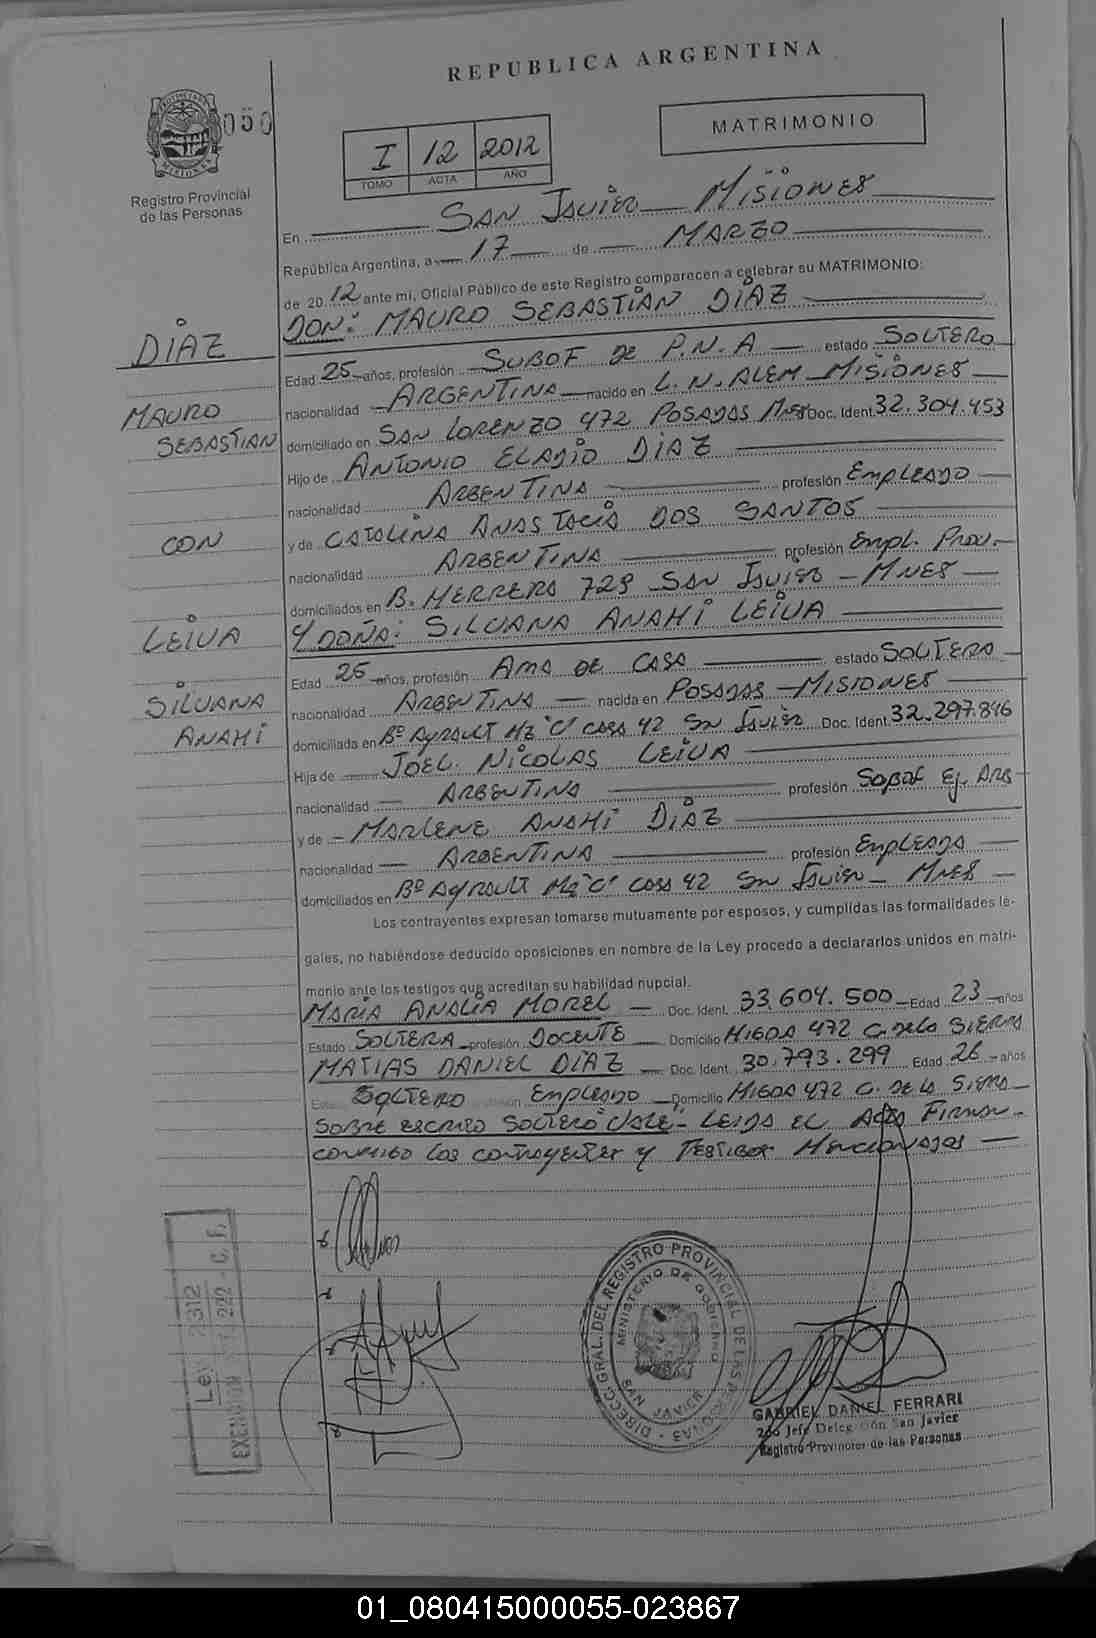 REPUBLICA ARGENTINA
050
Registro Provincial
de las Personas
I 12 2012
TOMO ACTA AÑO
MATRIMONIO
En San Javier Misiones
República Argentina, a 17 de MARZO
de 2012 ante mi, Oficial Público de este Registro comparecen a celebrar su MATRIMONIO:
DON: MAURO SEBASTIÁN DÍAZ
DÍAZ
MAURO
SEBASTIAN
CON
LEIVA
SILVANA
ANAHI
Edad 25 años, profesión SUBOF DE P.N.A estado SOLTERO
nacionalidad ARGENTINA nacido en L.N.ALEM MISIONES
domiciliado en SAN LORENZO 472 POSADAS Mnes Doc. Ident. 32.304.453
Hijo de ANTONIO ELADIO DIAZ
nacionalidad ARGENTINA profesión EMPLEADO
y de CATALINA ANASTACIA DOS SANTOS
nacionalidad ARGENTINA profesión Empl. Prov.
domiciliados en B. HERRERA 729 SAN JAVIER - MNES
Y DOÑA: SILVANA ANAHI LEIVA
Edad 25 años, profesión AMA DE CASA estado SOLTERA
nacionalidad ARGENTINA nacida en POSADAS - MISIONES
domiciliada en Bº Ayrault Mz "C" casa 42 Sn Javier Doc. Ident. 32.297.846
Hija de JOEL NICOLAS LEIVA
nacionalidad ARGENTINA profesión Subof Ej. Arg
y de MARLENE ANAHI DIAZ
nacionalidad ARGENTINA profesión EMPLEADA
domiciliados en Bº Ayrault Mz "C" casa 42 Sn Javier - MNES
Los contrayentes expresan tomarse mutuamente por esposos, y cumplidas las formalidades le-
gales, no habiéndose deducido oposiciones en nombre de la Ley procedo a declararlos unidos en matri-
monio ante los testigos que acreditan su habilidad nupcial.
MARÍA ANALÍA MOREL Doc. Ident. 33.604.500 Edad 23 años
Estado SOLTERA profesión DOCENTE Domicilio 472 C. de la SIERRA
MATIAS DANIEL DÍAZ Doc. Ident. 30.793.299 Edad 26 años
SOLTERO EMPLEADO Domicilio 472 C. DE LA SIERRA
SOBRE ESCRITO SOLTERO "VALE" LEIDA EL ACTA FIRMAN
CONMIGO los contrayentes y TESTIGOS MENCIONADOS
Ley 2312
EXENCION 222 - C. F.
DIRECC. GRAL. DEL REGISTRO PROVINCIAL DE LAS PERSONAS
MINISTERIO DE GOBIERNO
SAN JAVIER
GABRIEL DANIEL FERRARI
2do Jefe Delegación San Javier
Registro Provincial de las Personas
01_080415000055-023867